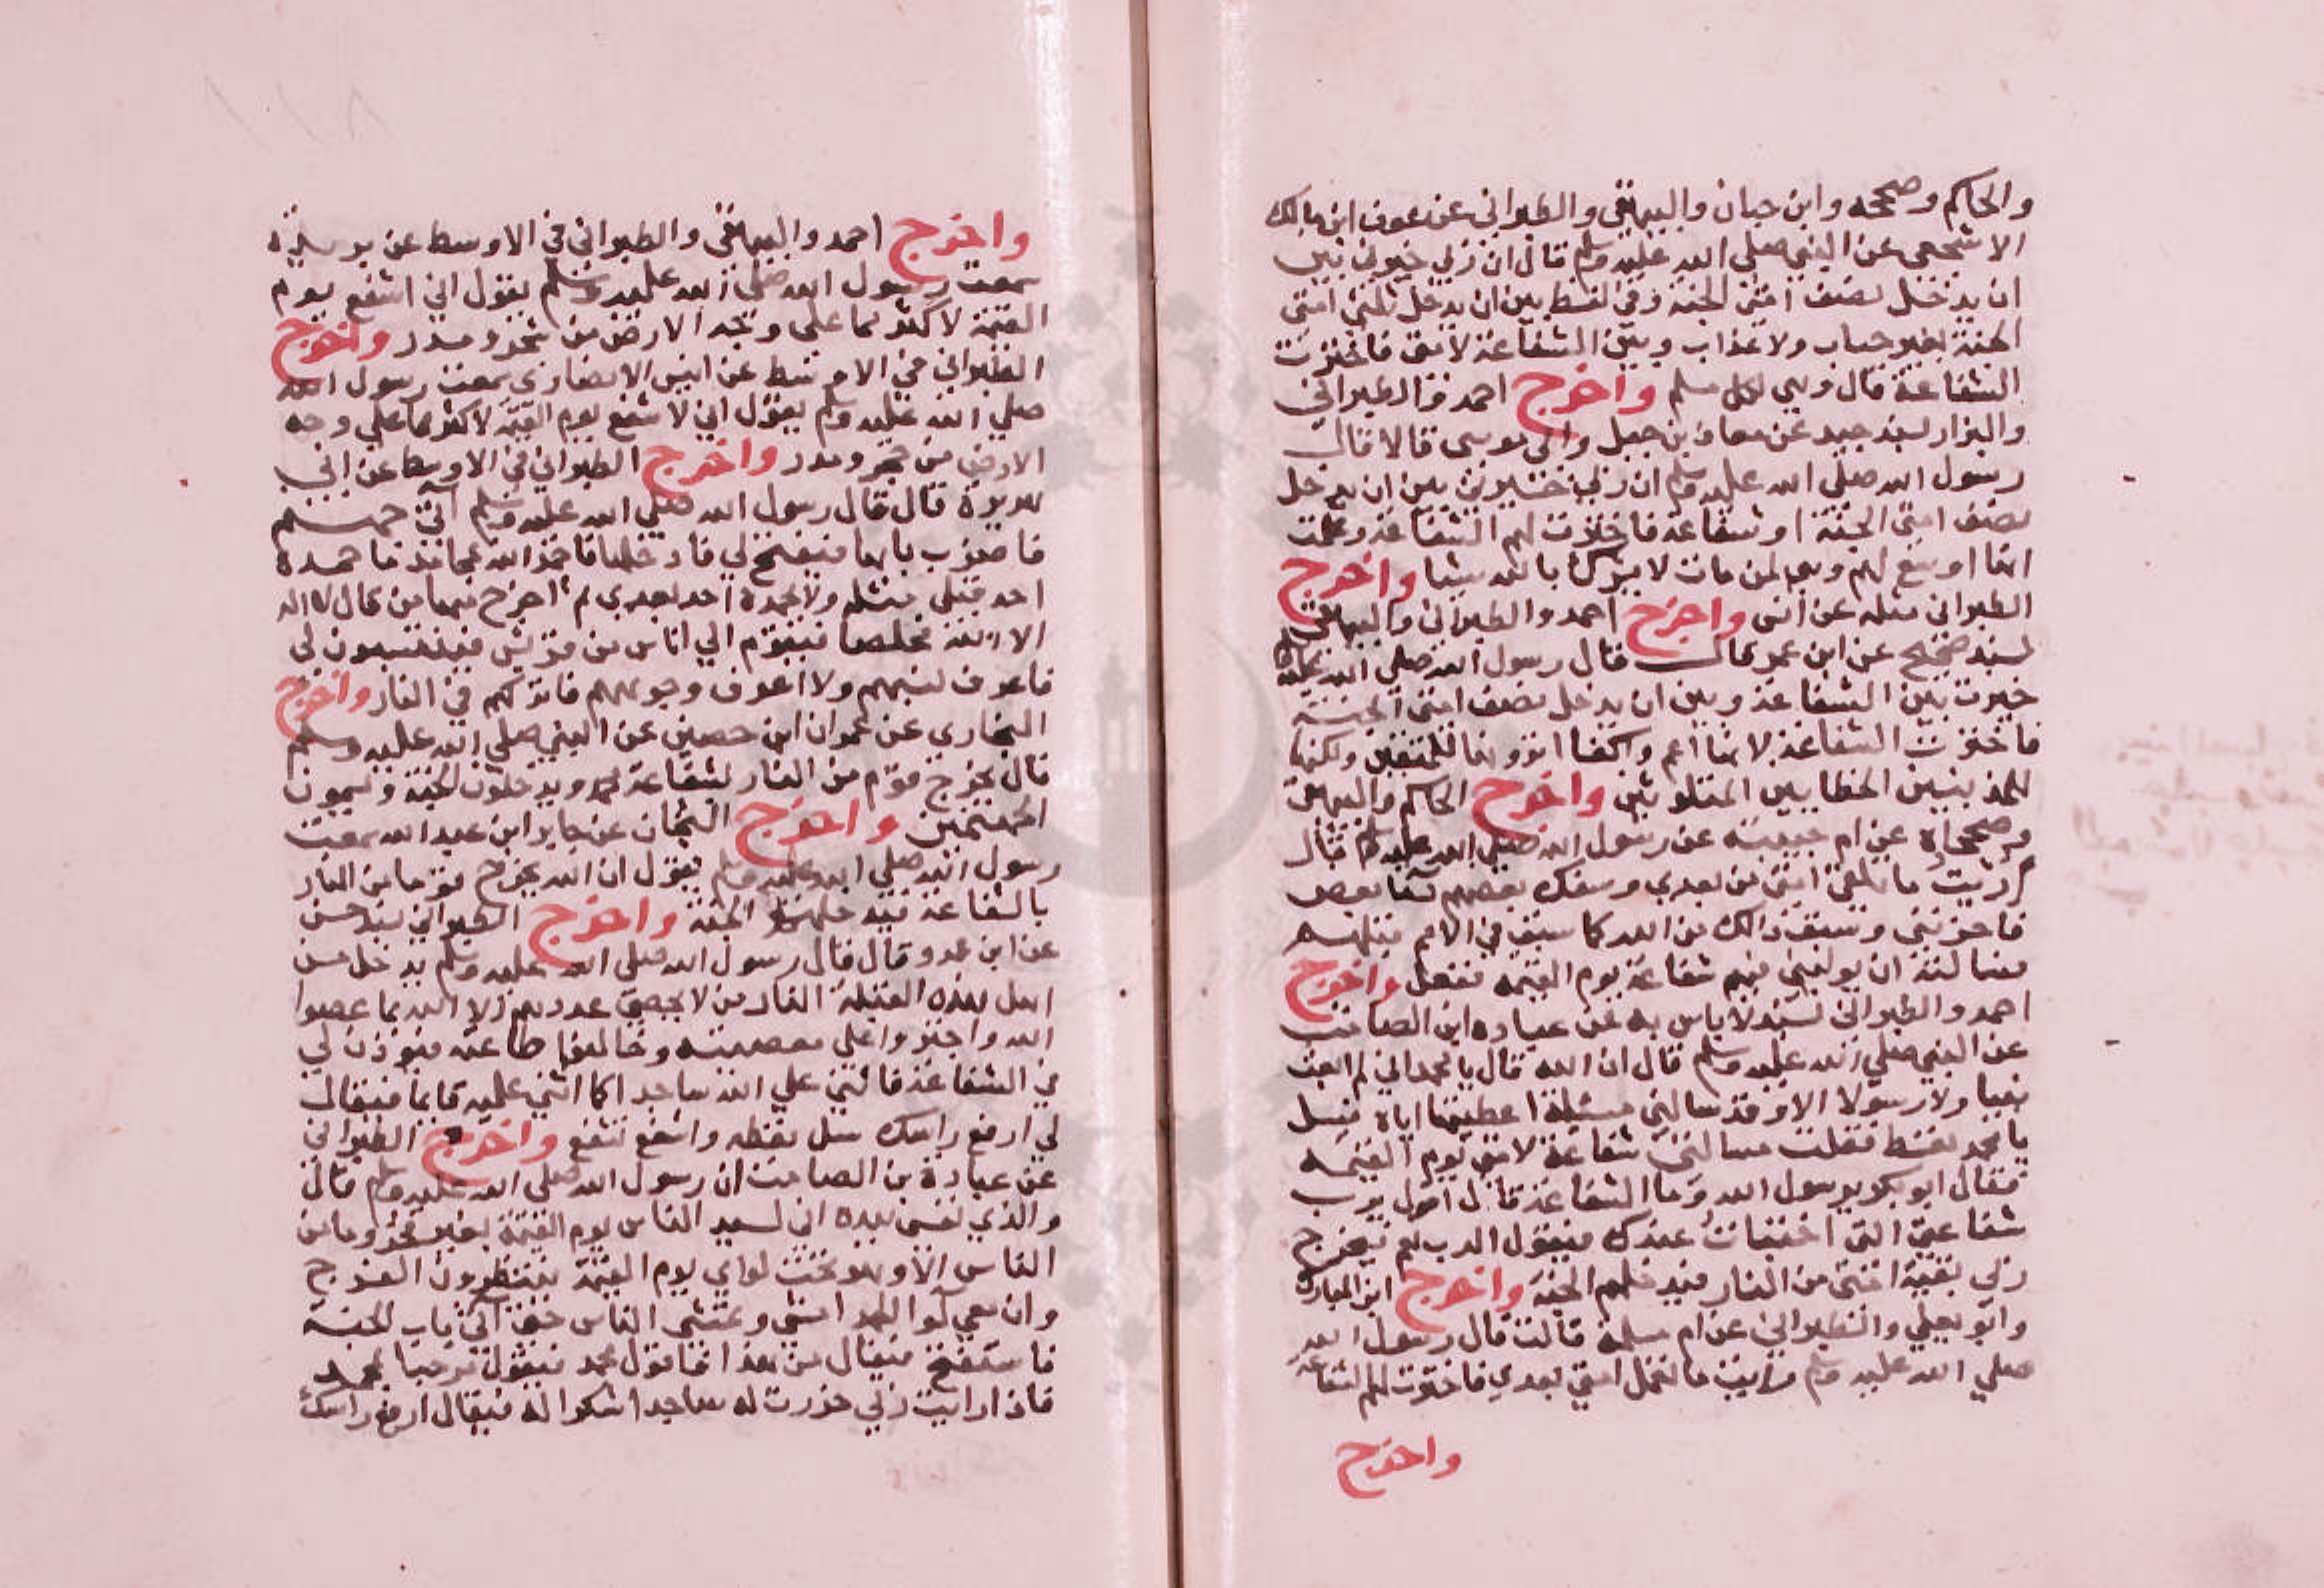 والحاكم وصححه وابن حبان والبيهقي والطبراني عن عوف ابن مالك
الاشجعي عن النبي صلى الله عليه وسلم قال ان ربي خيرني بين
ان يدخل نصف امتي الجنة وفي لفظ بين ان يدخل ثلثي امتي
الجنة بغير حساب ولا عذاب وبين الشفاعة لامتي فاخترت
الشفاعة قال وهي لكل مسلم واخرج احمد والطبراني
والبزار بسند جيد عن معاذ بن جبل وابي موسى قالا قال
رسول الله صلى الله عليه وسلم ان ربي خيرني بين ان يدخل
نصف امتي الجنة او شفاعة فاخترت لهم الشفاعة وعلمت
انها اوسع لهم وهي لمن مات لا يشرك بالله شيئا واخرج
الطبراني مثله عن انس واخرج احمد والطبراني والبيهقي
بسند صحيح عن ابن عمر قال قال رسول الله صلى الله عليه
خيرت بين الشفاعة وبين ان يدخل نصف امتي الجنة
فاخترت الشفاعة لانها اعم واكفا اترونها للمتقين ولكنها
للمذنبين الخطايين المتلوثين واخرج الحاكم والبيهقي
وصححاه عن ام حبيبة عن رسول الله صلى الله عليه قال
اريت ما تلقى امتي من بعدي وسفك بعضهم دما بعض
فاحزنني وسبق ذالك من الله كما سبق في الامم قبلهم
فسالته ان يوليني فيهم شفاعة يوم القيمة ففعل واخرج
احمد والطبراني بسند لا باس به عن عباده ابن الصامت
عن النبي صلي الله عليه وسلم قال ان الله قال يا محمد اني لم ابعث
نبيا ولا رسولا الا وقد سالني مسئلة اعطيتها اياه فسل
يا محمد تعط فقلت مسالتي شفاعة لامتي يوم القيمه
فقال ابو بكر يرسول الله وما الشفاعة قال اقول يرب
شفاعتي التي اختبات عندك فيقول الرب نعم فيخرج
ربي بقية امتي من النار فيدخلهم الجنة واخرج ابن المبارك
وابو يعلي والطبراني عن ام سلمة قالت قال رسول الله
صلي الله عليه وسلم رايت ما تعمل امتي بعدي فاخترت لهم الشفاعة
واخرج
واخرج احمد والبيهقي والطبراني في الاوسط عن بريدة
سمعت رسول الله صلي الله عليه وسلم يقول اني اشفع يوم
القيمة لاكثر مما على وجه الارض من شجر ومدر واخرج
الطبراني في الاوسط عن انيس الانصاري سمعت رسول الله
صلي الله عليه وسلم يقول اني لاشفع يوم القيمة لاكثر مما علي وجه
الارض من حجر ومدر واخرج الطبراني في الاوسط عن ابي
هريرة قال قال رسول الله صلي الله عليه وسلم آتي جهنم
فاضرب بابها فيفتح لي فادخلها فاحمد الله محامد ما حمده
احد قبلي مثله ولا يحمده احد بعدي ثم اخرج منها من قال لا اله
الا الله مخلصا فيقوم الي اناس من قريش فينتسبون لي
فاعرف نسبهم ولا اعرف وجوههم فاتركهم في النار واخرج
البخاري عن عمران ابن حصين عن النبي صلي الله عليه وسلم
قال يخرج قوم من النار بشفاعة محمد ويدخلون الجنة ويسمون
الجهنميين واخرج الشيخان عن جابر ابن عبد الله سمعت
رسول الله صلي الله عليه وسلم يقول ان الله يخرج قوما من النار
بالشفاعة فيدخلهم الجنة واخرج الطبراني بسند حسن
عن ابن عمرو قال قال رسول الله صلي الله عليه وسلم يدخل من
اهل هذه القبلة النار من لا يحصي عددهم الا الله بما عصوا
الله واجترءوا علي معصيته وخالفوا طاعته فيؤذن لي
في الشفاعة فاثني علي الله ساجدا كما اثني عليه قايما فيقال
لي ارفع راسك سل تعطه واشفع تشفع واخرج الطبراني
عن عبادة بن الصامت ان رسول الله صلى الله عليه وسلم قال
والذي نفسي بيده اني لسيد الناس يوم القيمة بغير فخر وما من
الناس الا وهو تحت لواي يوم القيمة ينتظرون الفرج
وان معي لوا الحمد امشي وتمشي الناس حتى آتي باب الجنة
فاستفتح فيقال من هذا فاقول محمد فيقول مرحبا بمحمد
فاذا رايت ربي خررت له ساجدا شكرا له فيقال ارفع راسك